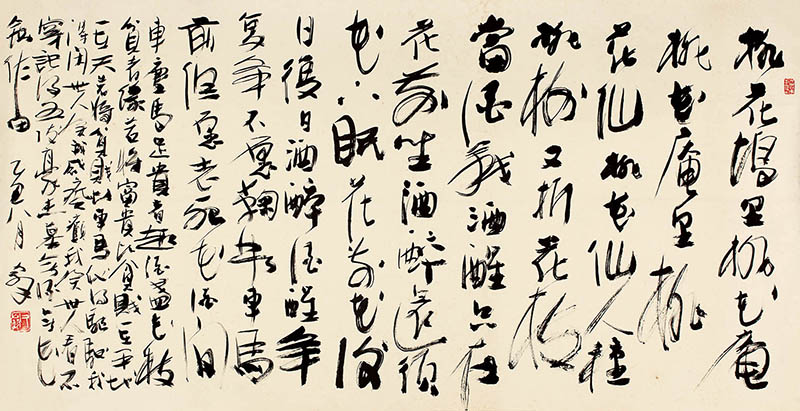 桃花塢里桃花庵
桃花庵里桃
花仙桃花仙人種
桃樹又折花枝
當酒錢酒醒只在
花前坐酒醉還須
花下眠花前花後
日復日酒醉酒醒年
复年不愿鞠躬車馬
前但愿老死花酒間
車塵馬足貴者趣酒盞花枝
貧者緣若將富貴比貧賤一在平地
一在天若將貧賤比車馬他得驅馳我
得閑世人笑我忒瘋癲我笑世人看不
穿記得五陵豪杰墓無酒無花
鋤作田 乙酉八月